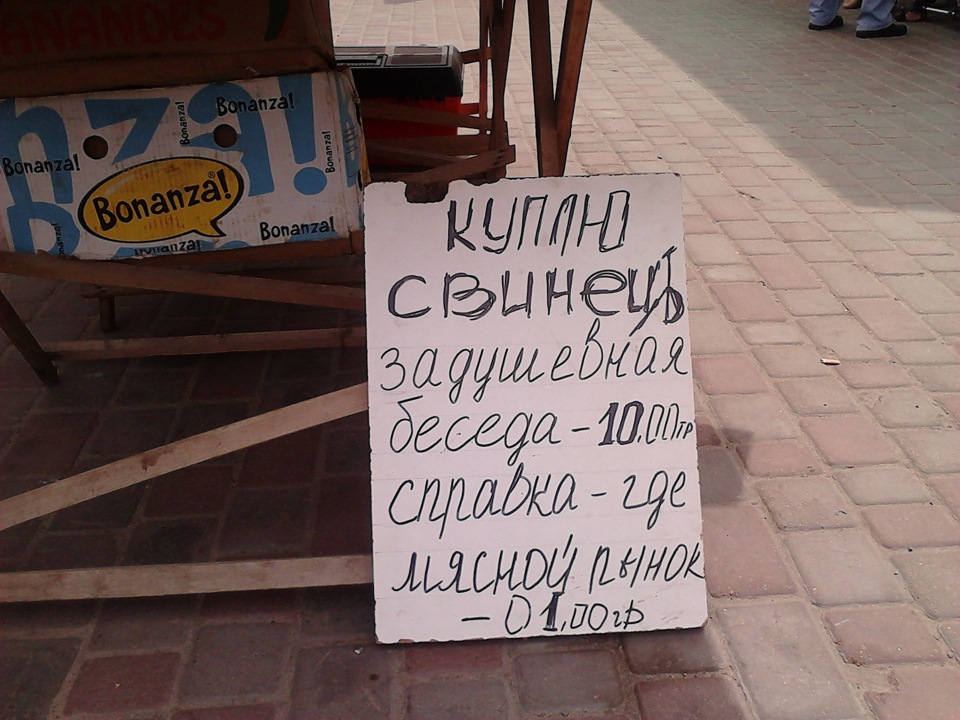 ANANDES
nza!
Bonanza!
Bonanza!
Bonanza!
Bonanza!
Bonanza!
Bonanza!
Bonanza!
КУПЛЮ
СВИНЕЦЪ
задушевная
беседа - 10.00гр
справка - где
мясной рынок
- 01.00гр